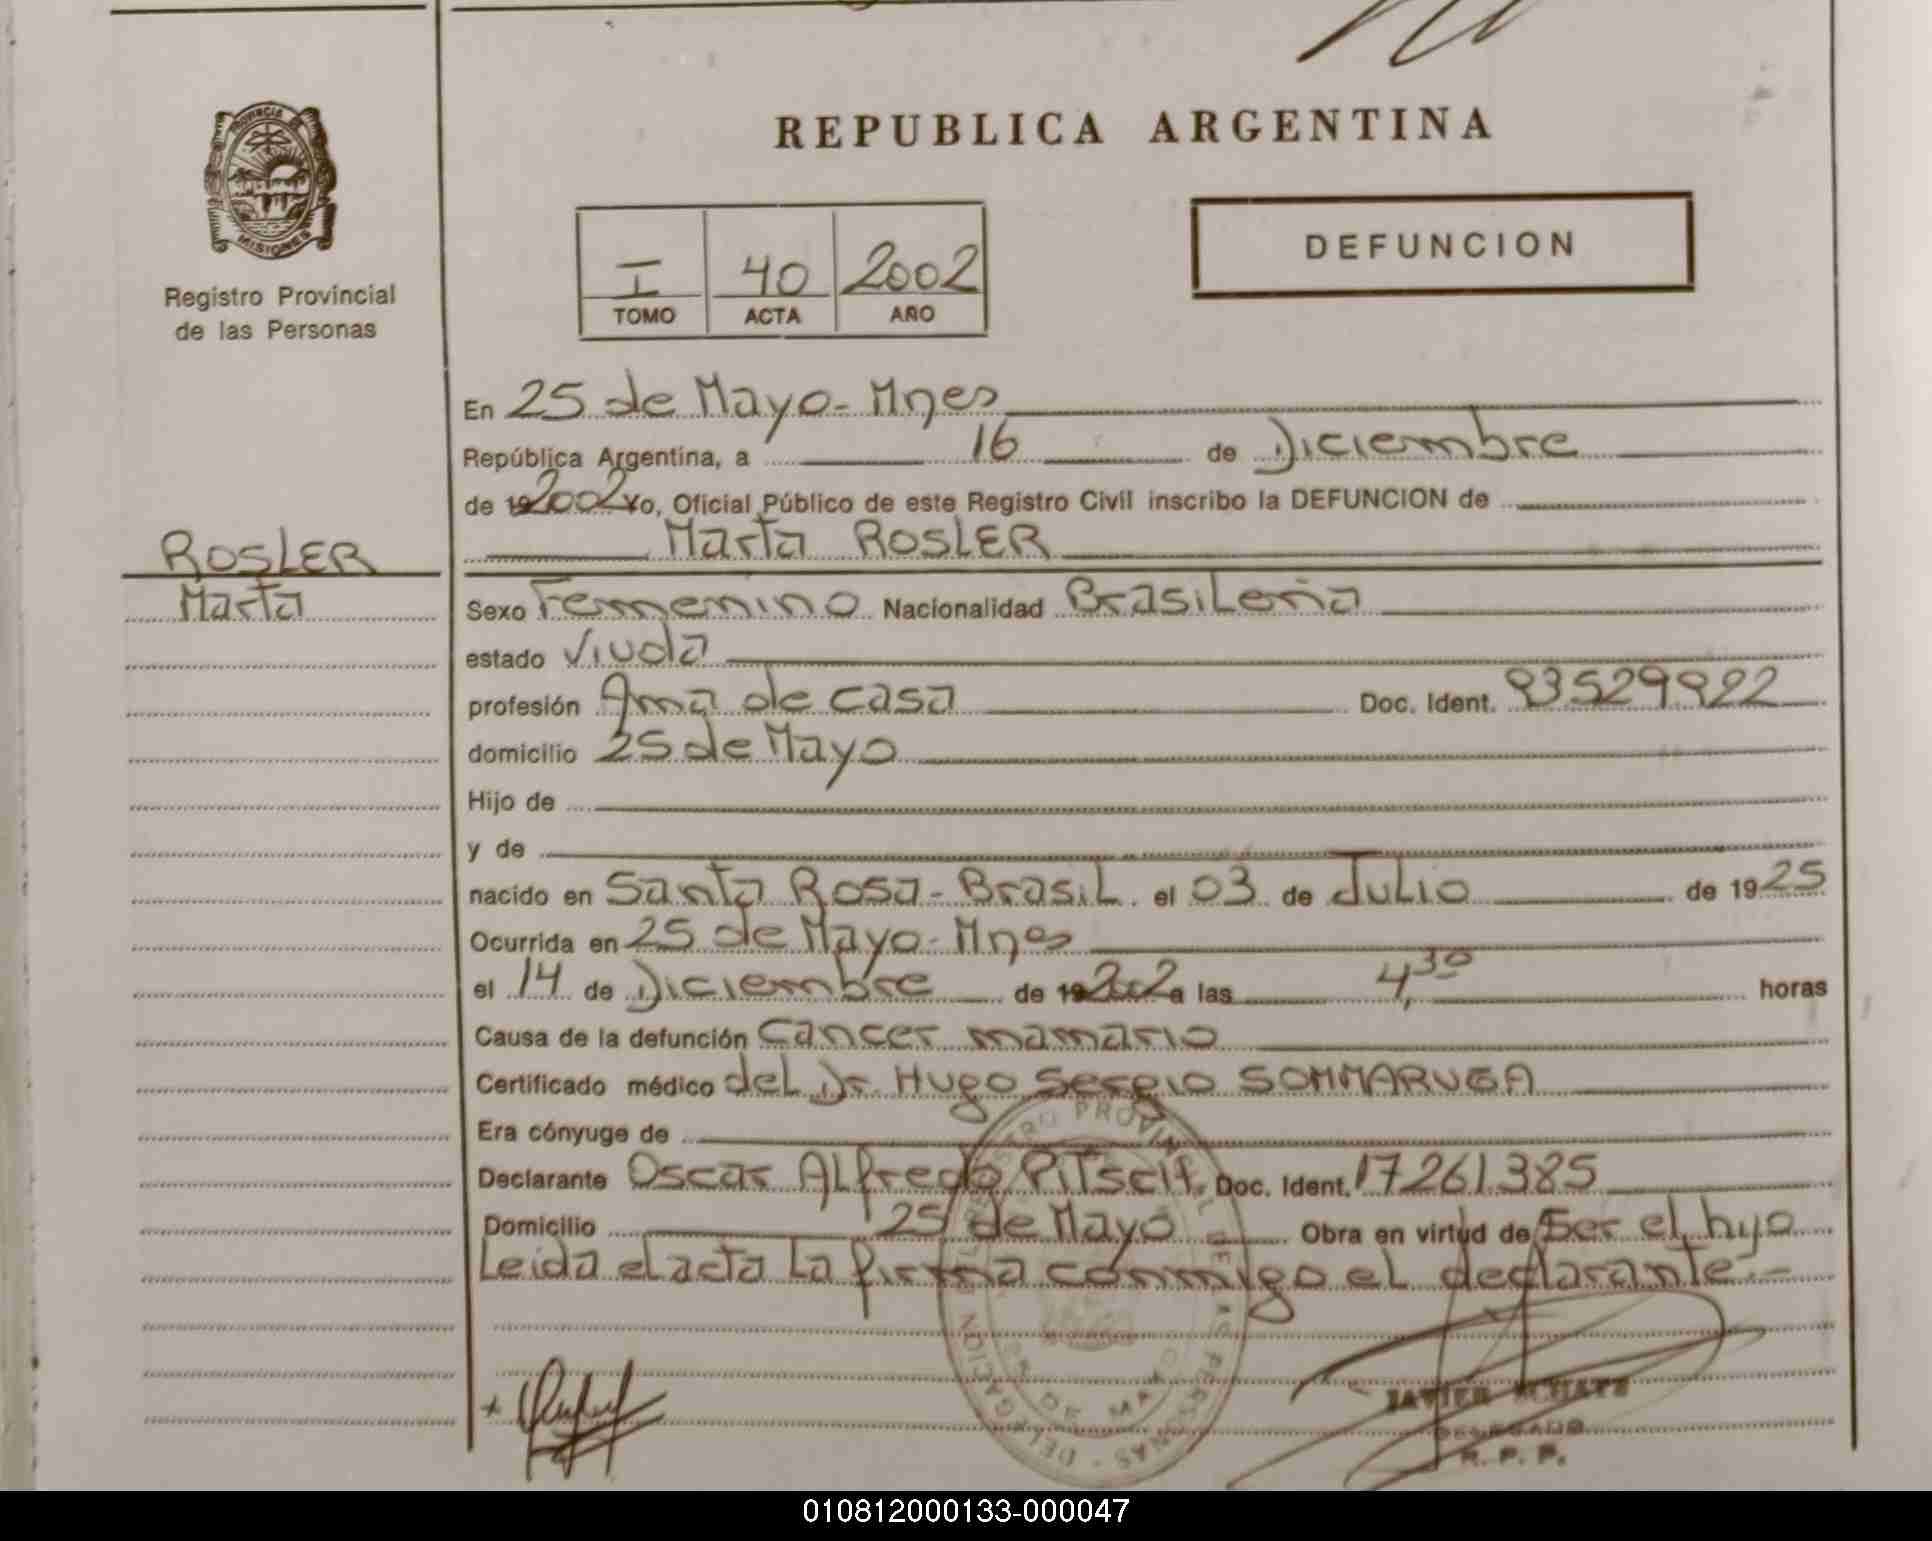 REPUBLICA ARGENTINA
PROVINCIA DE
MISIONES
Registro Provincial
de las Personas
DEFUNCION
I 40 2002
TOMO ACTA AÑO
En 25 de Mayo - Mnes
República Argentina, a 16 de Diciembre
de 192002 Yo, Oficial Público de este Registro Civil inscribo la DEFUNCION de
Marta ROSLER
ROSLER
Marta
Sexo Femenino Nacionalidad Brasileña
estado Viuda
profesión Ama de casa Doc. Ident. 93529922
domicilio 25 de Mayo
Hijo de
y de
nacido en Santa Rosa - Brasil. el 03 de Julio de 1925
Ocurrida en 25 de Mayo - Mnes
el 14 de Diciembre de 192002 a las 4,30 horas
Causa de la defunción Cancer mamario
Certificado médico del Dr. Hugo Sergio SOMMARUGA
Era cónyuge de
Declarante Oscar Alfredo Doc. Ident. 17261.385
Domicilio 25 de Mayo Obra en virtud de Ser el hijo
Leida el acta la firma conmigo el declarante.-
REGISTRO PROVINCIAL DE LAS PERSONAS - DELEGACION
25 DE MAYO
JAVIER
DELEGADO
R. P. P.
010812000133-000047